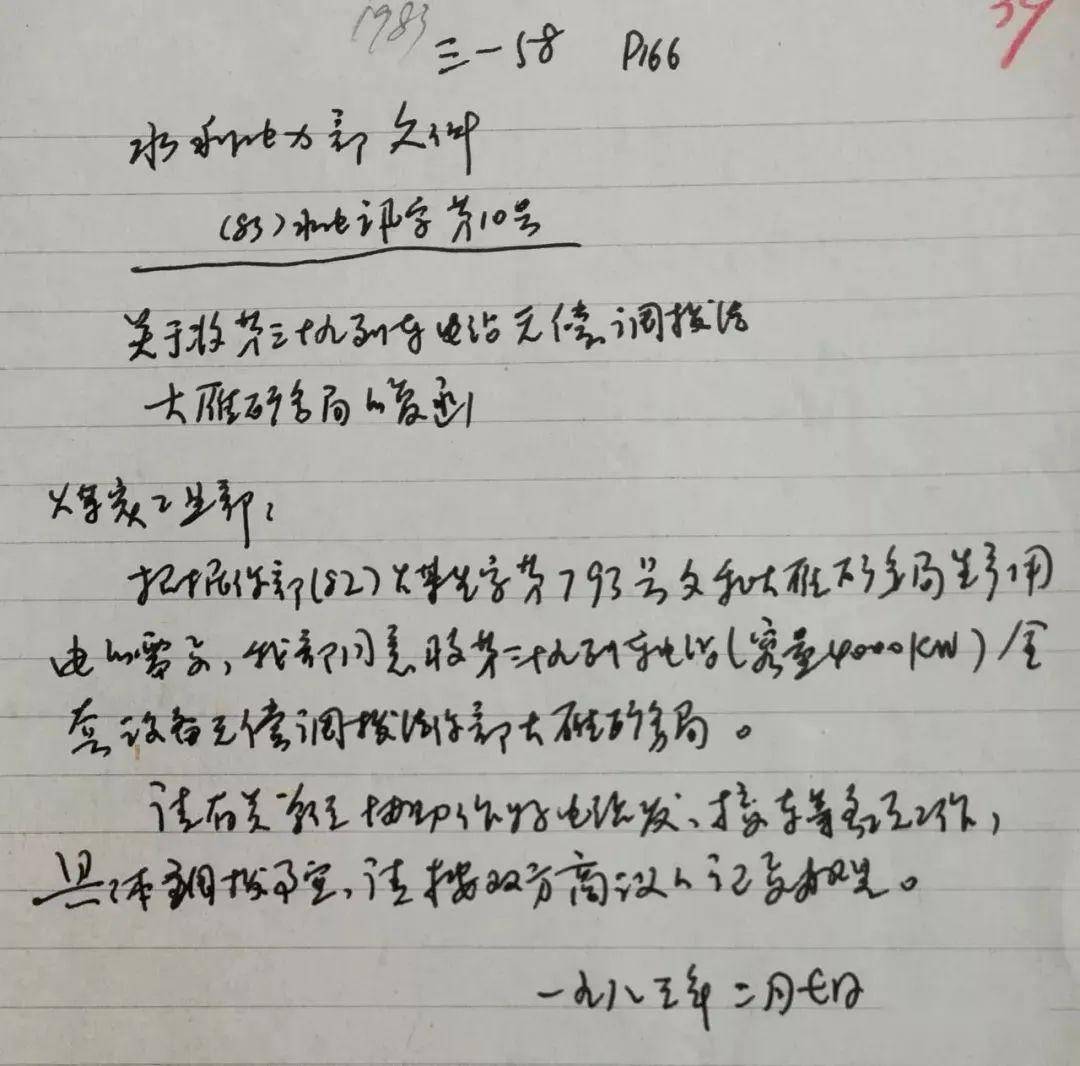 1983
三—58 P166
水利电力部文件
(83)水电讯字第10号
关于将第三十九列车电站无偿调拨给
大雁矿务局的复函
煤炭工业部：
根据你部(82)煤生字第793号文和大雁矿务局生产用
电的需要，我部同意将第三十九列车电站(容量4000KW)全
套设备无偿调拨给你部大雁矿务局。
请有关单位抓紧作好电站发、接车等项工作，
具体调拨事宜，请按双方商议的记录办理。
一九八三年二月七日